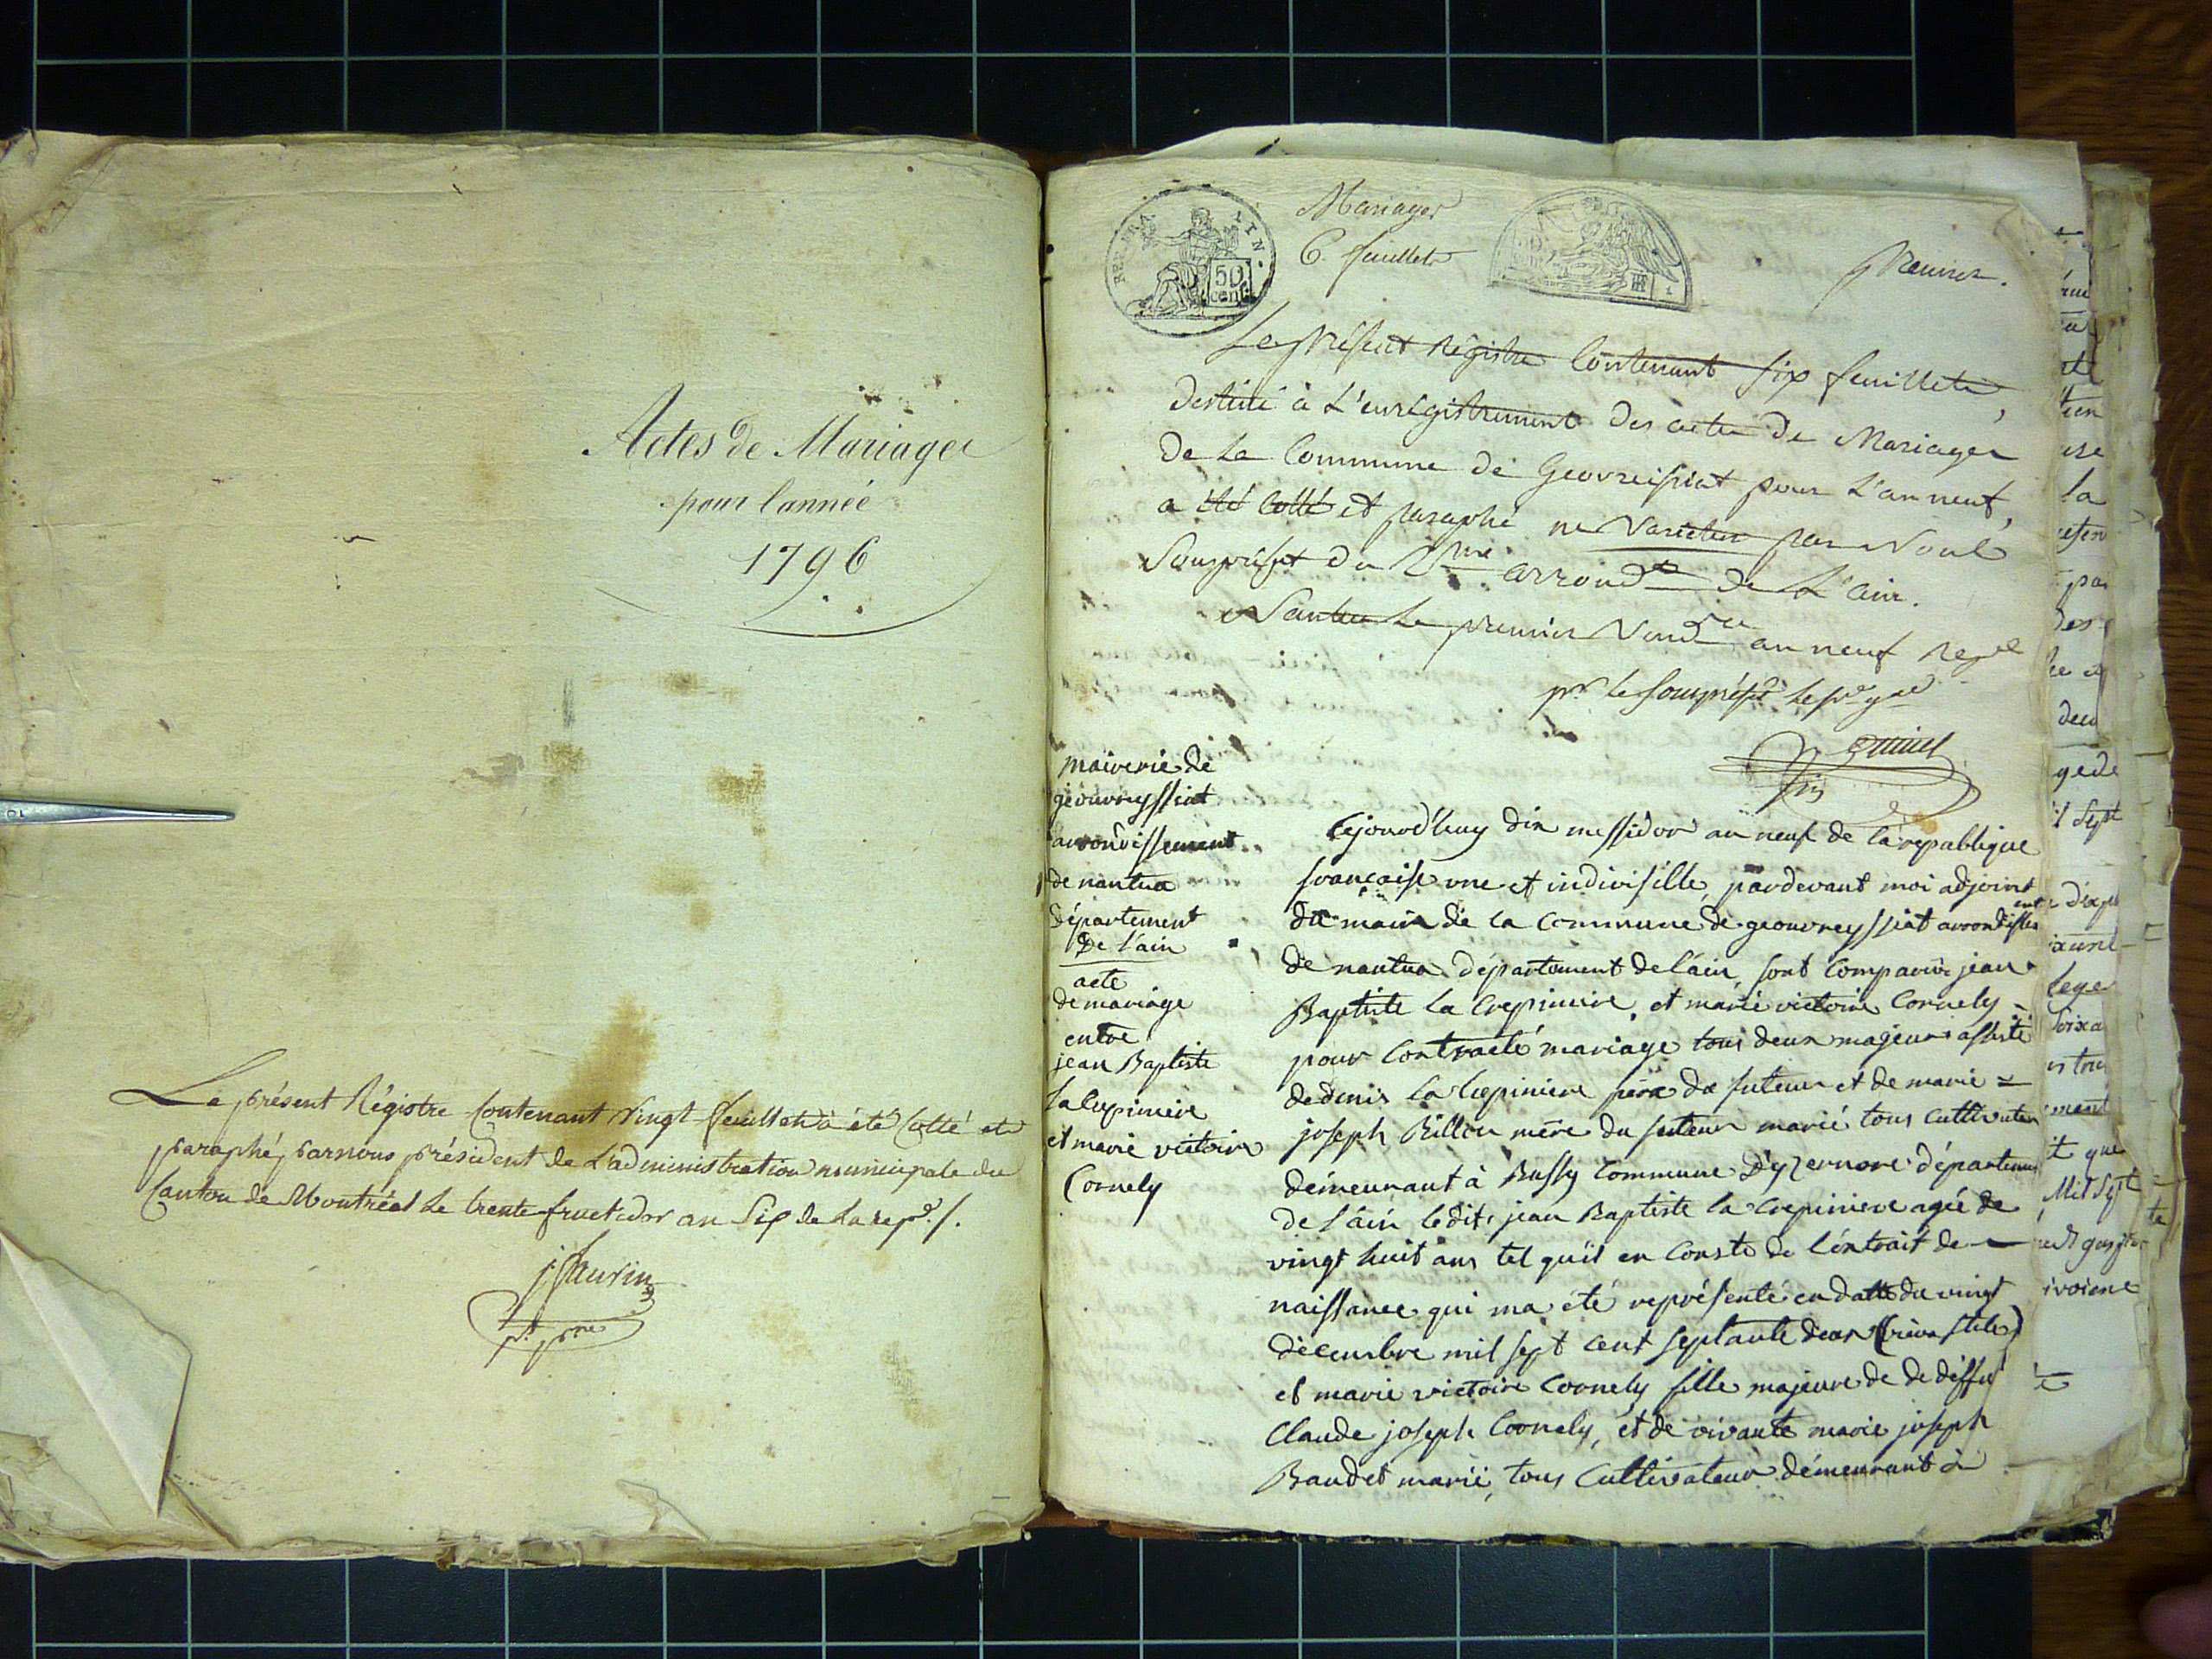 Actes de Mariages
pour l'année
1796
Le présent Régistre contenant vingt feuillets à été cotté et
paraphé, par nous président de L'administration municipale du
Canton de Montréal le trente fructidor an Six de La rep.e /.
REP. FRA
50
cent.
Mariages
6. feuillets
premier.
Le présent Régistre Contenant six feuillets,
destiné à L'enrégistrement des actes de Mariages
de la Commune de Geovreissiat pour L'an neuf,
a été cotté et paraphé ne Varietur par Nous
Sousprefet du arrond.t de L'ain.
Nantua le premier Vend.re an neuf
p.r le Souspréfet
mairerie de
geouvreyssiat
arrondissement
de nantua
département
De l'ain
acte
de mariage
entre
jean Baptiste
la Crepiniere
et marie victoire
Cornely
Cejourd'huy dix messidor an neuf de la republique
francaise une et indivisille, pardevant moi adjoint
du maire de la commune de geouvreyssiat arrondissement
de nantua département de l'ain, sont comparus jean
Baptiste la Crepiniere, et marie victoire Cornely
pour Contracté mariage tous deux majeurs assisté
de denis la Crepiniere père du futeur et de marie =
joseph Billion mère du futeur marié tous cultivateur
démeurant à Bussy commune d'yzernore département
de l'ain ledit jean Baptiste la Crepiniere agé de
vingt huit ans tel qu'il en Conste de l'éxtrait de
naissance qui ma été représenté en datte du vingt
décembre mil sept cent septante deux (vieux stile)
et marie victoire Cornely fille majeure de de diffu
Claude joseph Cornely, et de vivante marie joseph
Baudet marié, tous Cultivateur démeurant à